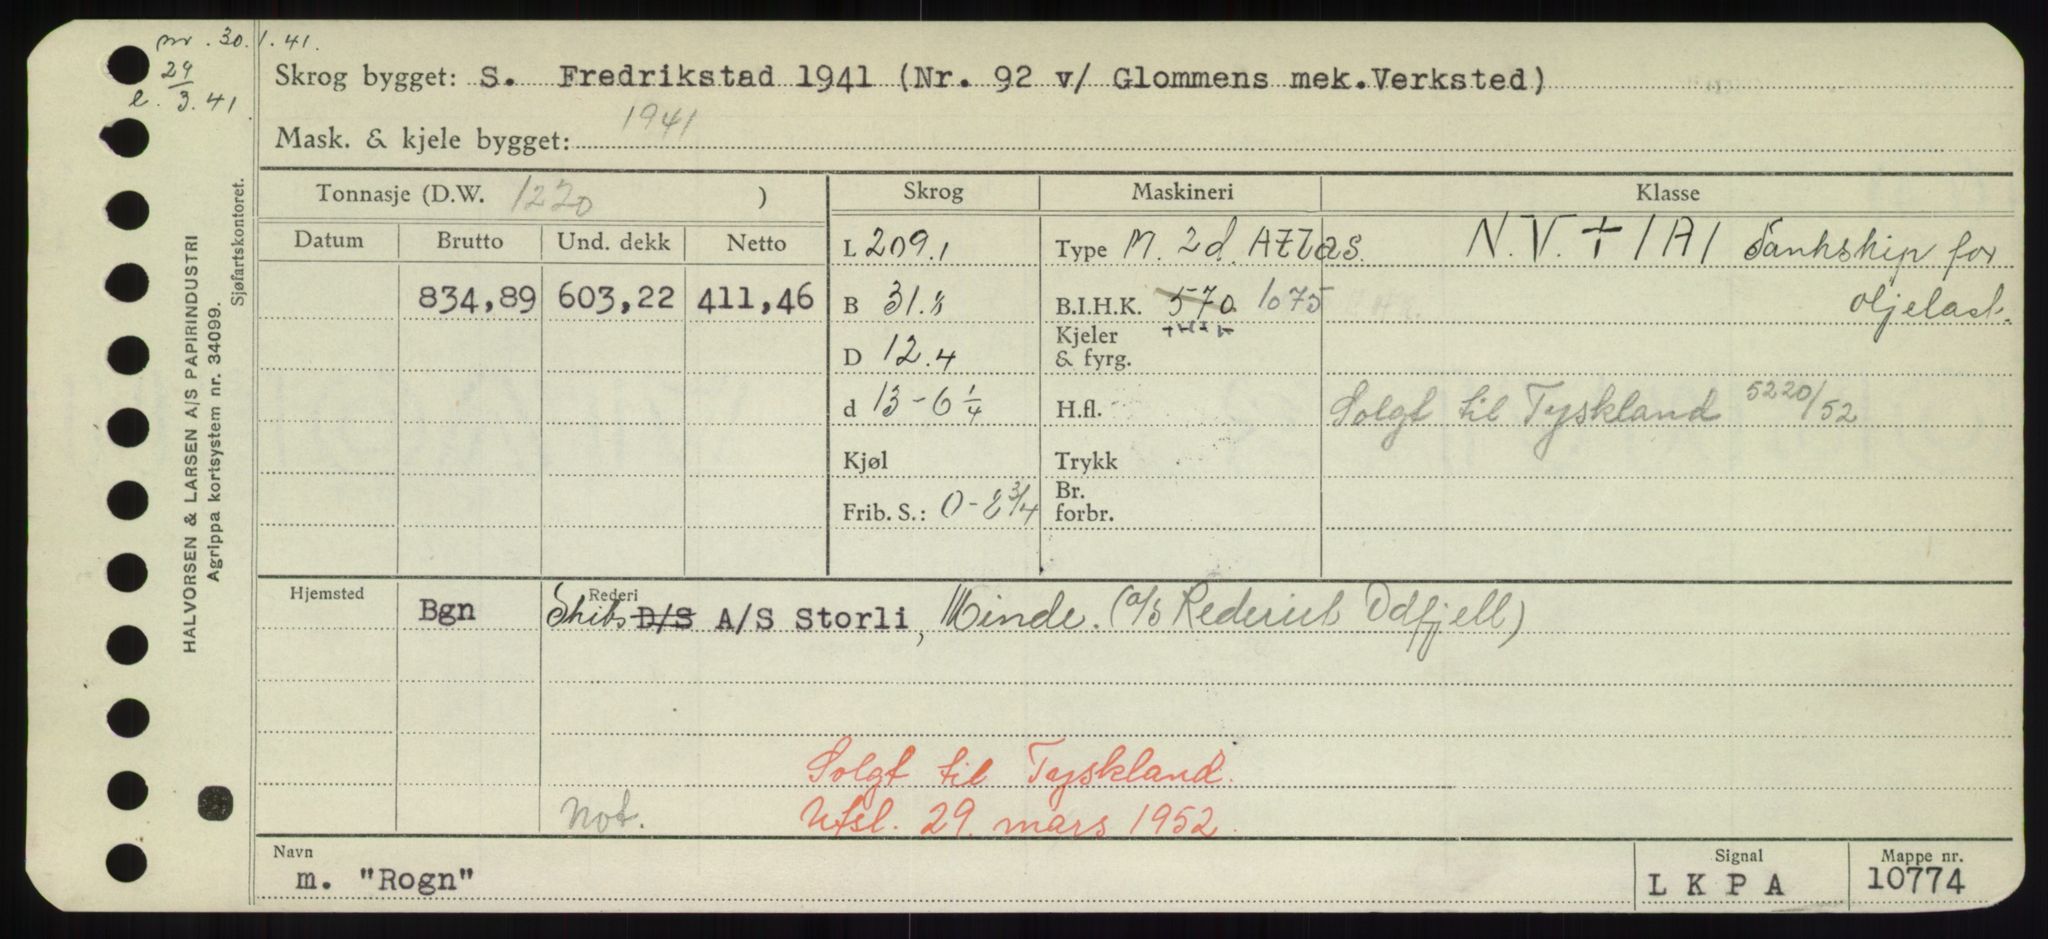 nr. 30.1.41.
29
e. 3.41
Skrog bygget: S. Fredrikstad 1941 (Nr. 92 v/ Glommens mek.Verksted)
Mask. & kjele bygget: 1941
Tonnasje (D.W. 1220 )
Skrog
Maskineri
Klasse
Datum
Brutto
Und. dekk
Netto
834,89
603,22
411,46
L 209.1
B 31.8
D 12.4
d 13-6 1/4
Kjøl
Frib. S.: 0-8 3/4
Type M. 2d. Atlas.
B.I.H.K. 570 1075
Kjeler
& fyrg.
H.fl.
Trykk
Br.
forbr.
N.V. + 1A1 Tankship for
oljelast.
Solgt til Tyskland 5220/52
Hjemsted
Bgn
Rederi
Skibs D/S A/S Storli, Minde. (A/S Rederiet Odfjell)
Solgt til Tyskland.
not.
Utsl. 29. mars 1952.
Navn
m. "Rogn"
Signal
L K P A
Mappe nr.
10774
HALVORSEN & LARSEN A/S PAPIRINDUSTRI
Agrippa kortsystem nr. 34099.
Sjøfartskontoret.